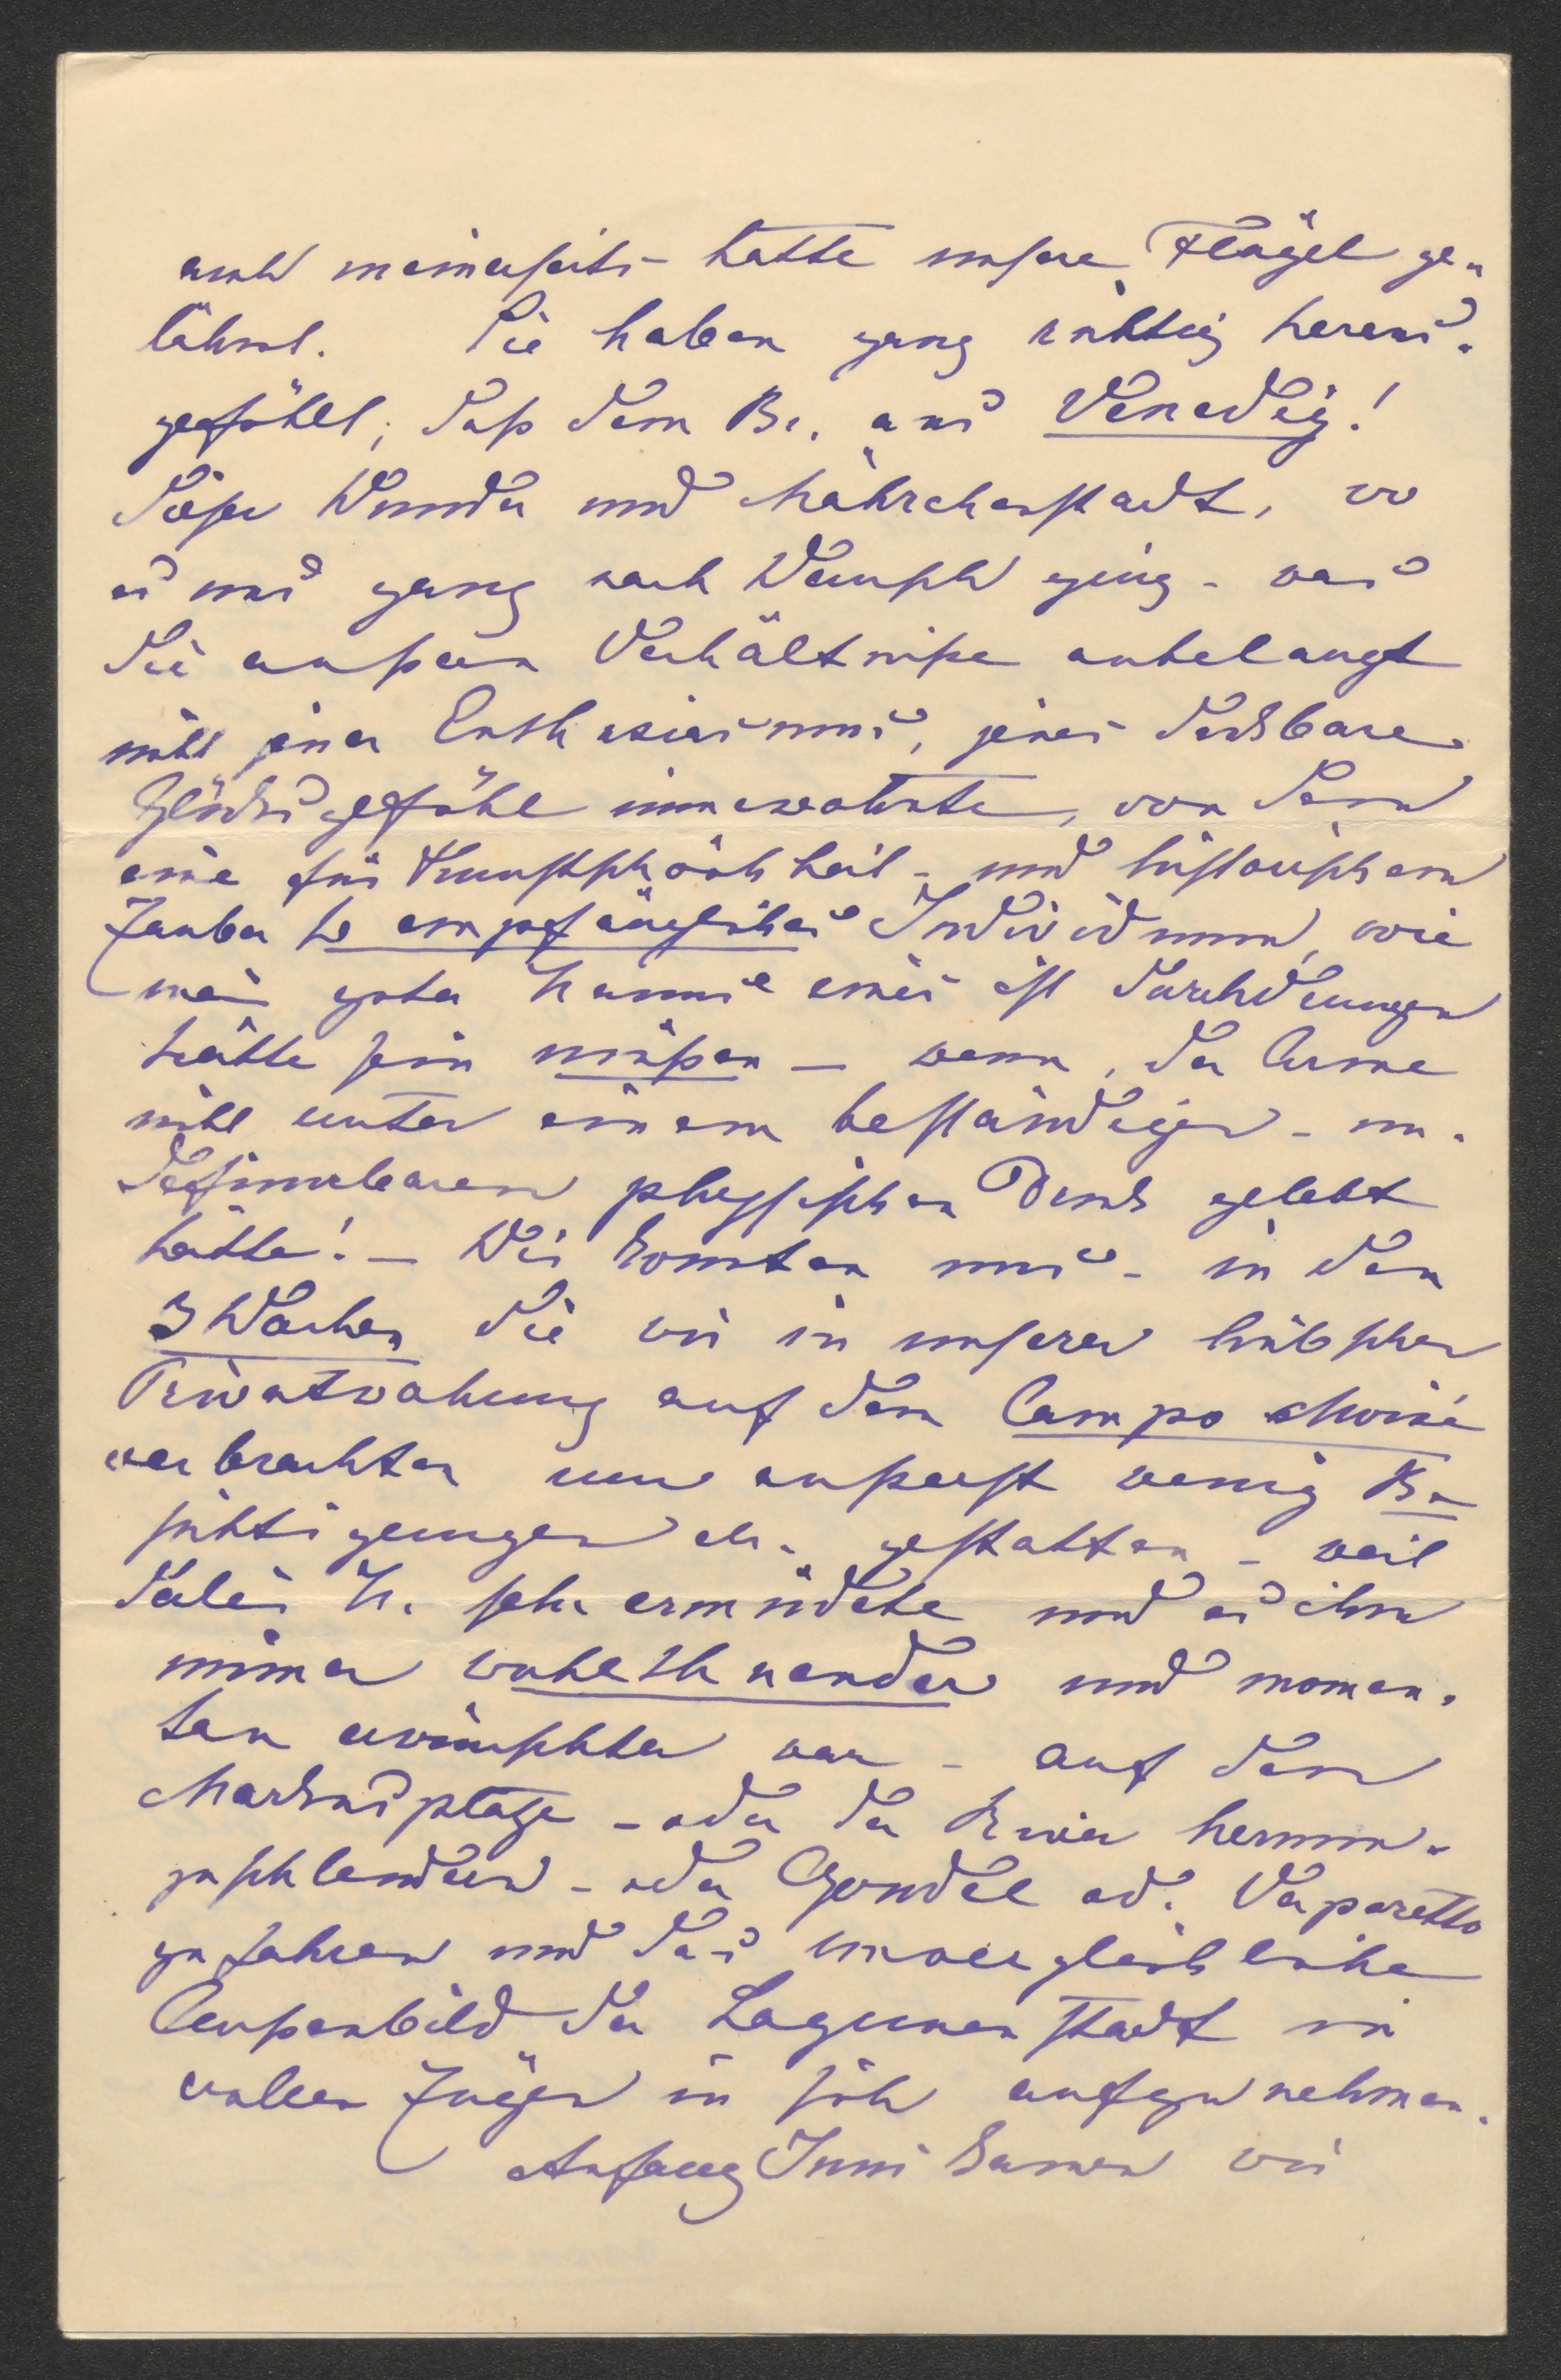 auch meinerseits – hatte unsere Flügel ge-
lähmt. Sie haben ganz richtig heraus-
gefühlt, daß dem Br. aus Venedig!
dieser Wunder und Mährchenstadt, wo
es uns ganz nach Wunsch ging – was
die äußern Verhältniße anbelangt
nicht jener Enthusiasmus, jenes dankbare
Glücksgefühl innewohnte, von dem
eine für Kunstschönheit – und historischen
Zauber so empfängliches Individuum, wie
mein guter Hanns eines ist durchdrungen
hätte sein müßen – wenn, der Arme
nicht unter einem beständigen – un-
definirbaren physischen Druck gelebt
hätte! – Wir konnten uns – in den
3 Wochen die wir in unserer hübschen
Privatwohnung auf dem Campo Moisé
verbrachten nur äußerst wenig Be-
sichtigungen etc. gestatten – weil
dales H. sehr ermüdete und es ihm
immer wohlthuender und momen-
tan erwünschter war – auf dem
Markusplatze – oder der Riva herum-
zuschlendern – oder Gondel od. Vaporetto
zu fahren und das unvergleichliche
Außenbild der Lagunenstadt in
vollen Zügen in sich aufzunehmen.
Anfang Juni kamen wir